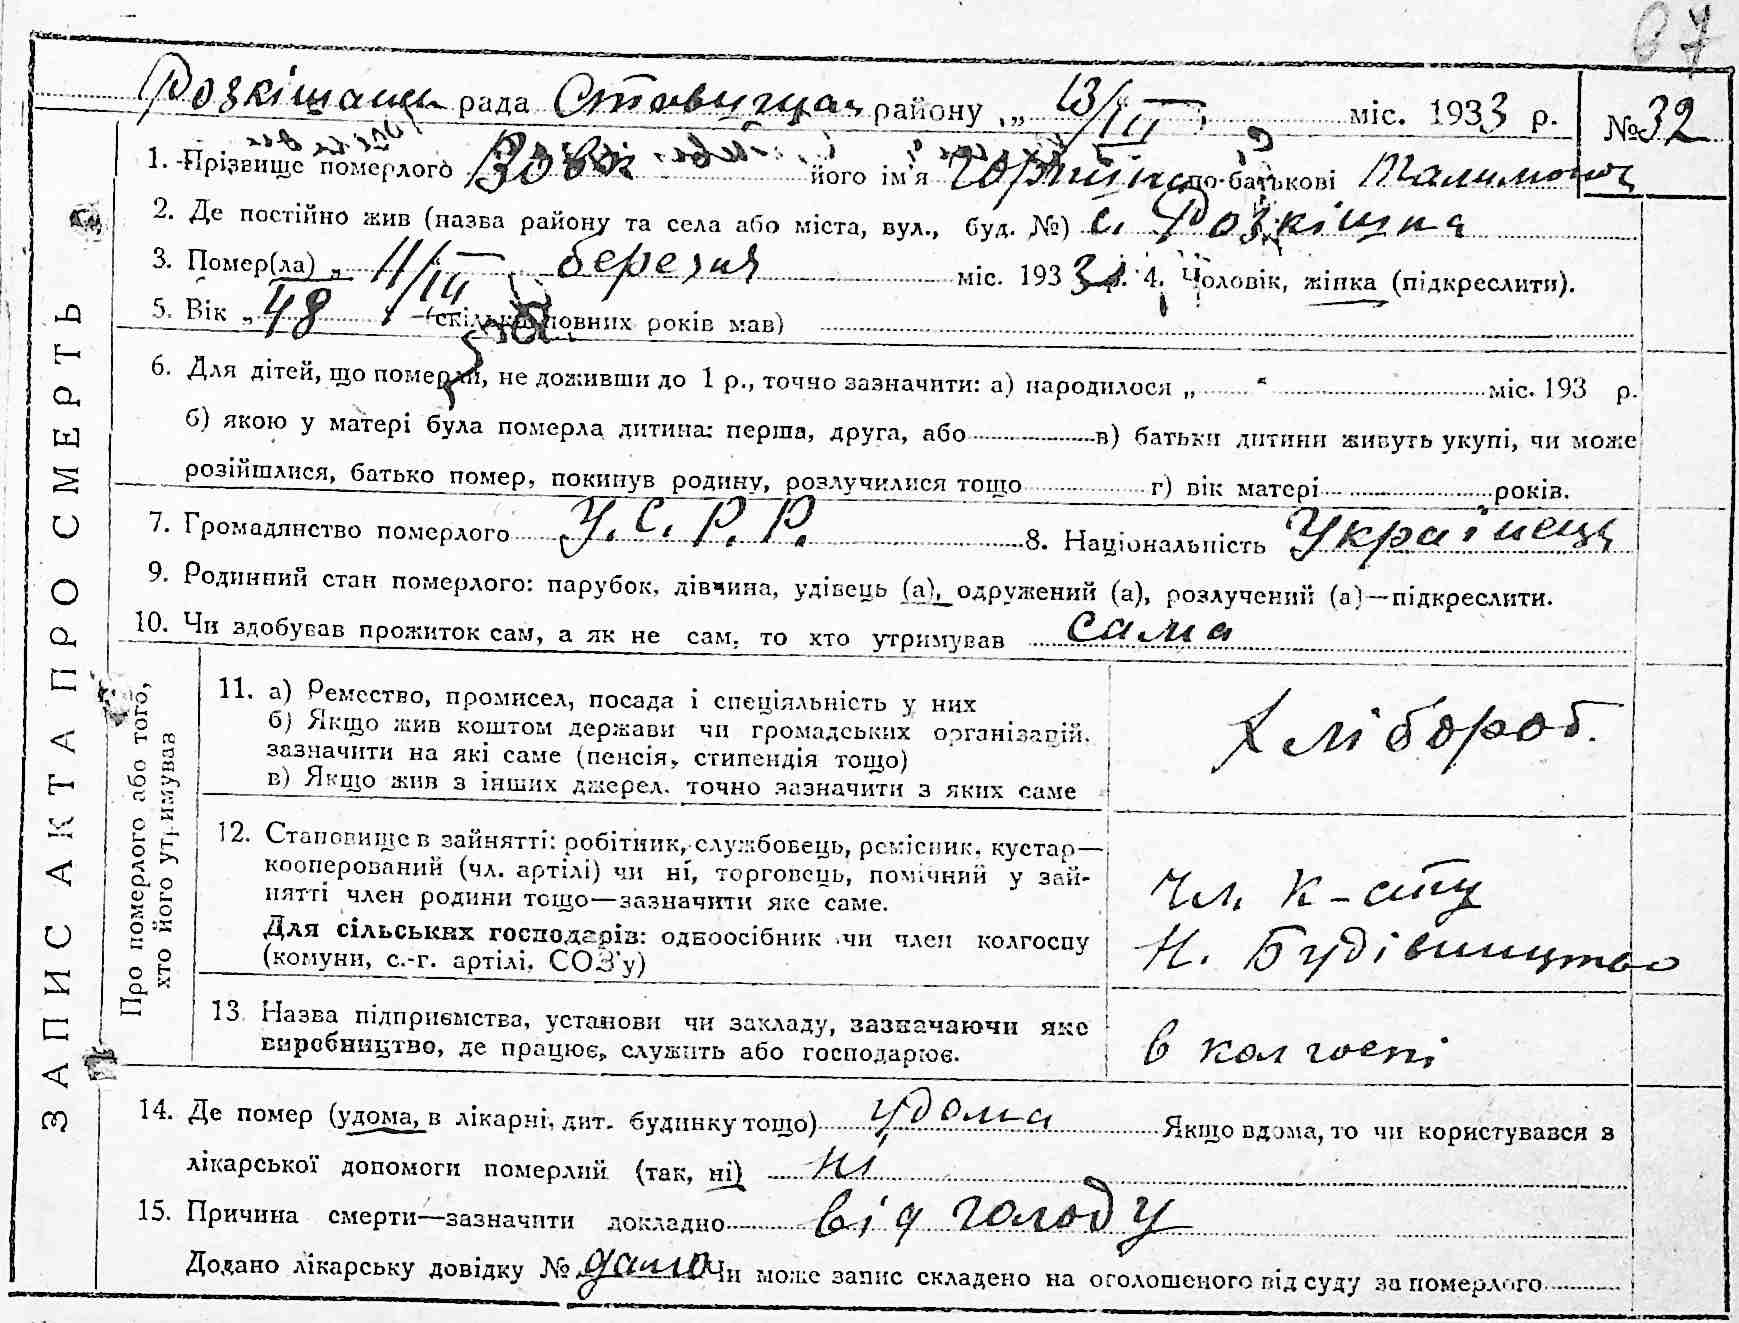 67
Розкішаньська рада Ставищан. району „ 13/III міс. 1933 р. №32
1. Прізвище померлого Вовк його ім'я по-батькові
2. Де постійно жив (назва району та села або міста, вул., буд. №) с. Розкішна
3. Помер(ла) „ 11/III березня міс. 1933 р. 4. Чоловік, жінка (підкреслити).
5. Вік „ 48 (скільки повних років мав)
6. Для дітей, що померли, не доживши до 1 р., точно зазначити: а) народилося „ “ міс. 193 р.
б) якою у матері була померла дитина: перша, друга, або в) батьки дитини живуть укупі, чи може
розійшлися, батько помер, покинув родину, розлучилися тощо г) вік матері років.
7. Громадянство померлого У.С.Р.Р. 8. Національність Українець
9. Родинний стан померлого: парубок, дівчина, удівець (а), одружений (а), розлучений (а)—підкреслити.
10. Чи здобував прожиток сам, а як не сам, то хто утримував сама
ЗАПИС АКТА ПРО СМЕРТЬ
Про померлого або того,
хто його утримував
11. а) Ремество, промисел, посада і спеціяльність у них
б) Якщо жив коштом держави чи громадських організацій,
зазначити на які саме (пенсія, стипендія тощо)
в) Якщо жив з інших джерел, точно зазначити з яких саме
Хлібороб.
12. Становище в зайнятті: робітник, службовець, ремісник, кустар—
кооперований (чл. артілі) чи ні, торговець, помічний у зай-
нятті член родини тощо—зазначити яке саме.
Для сільських господарів: одноосібник чи член колгоспу
(комуни, с.-г. артілі, СОЗ'у)
Чл. к-сту
Н. Будівництво
13. Назва підприємства, установи чи закладу, зазначаючи яке
виробництво, де працює, служить або господарює.
в колгоспі
14. Де помер (удома, в лікарні, дит. будинку тощо) удома Якщо вдома, то чи користувався з
лікарської допомоги померлий (так, ні) ні
15. Причина смерти—зазначити докладно від голоду
Додано лікарську довідку № Чи може запис складено на оголошеного від суду за померлого